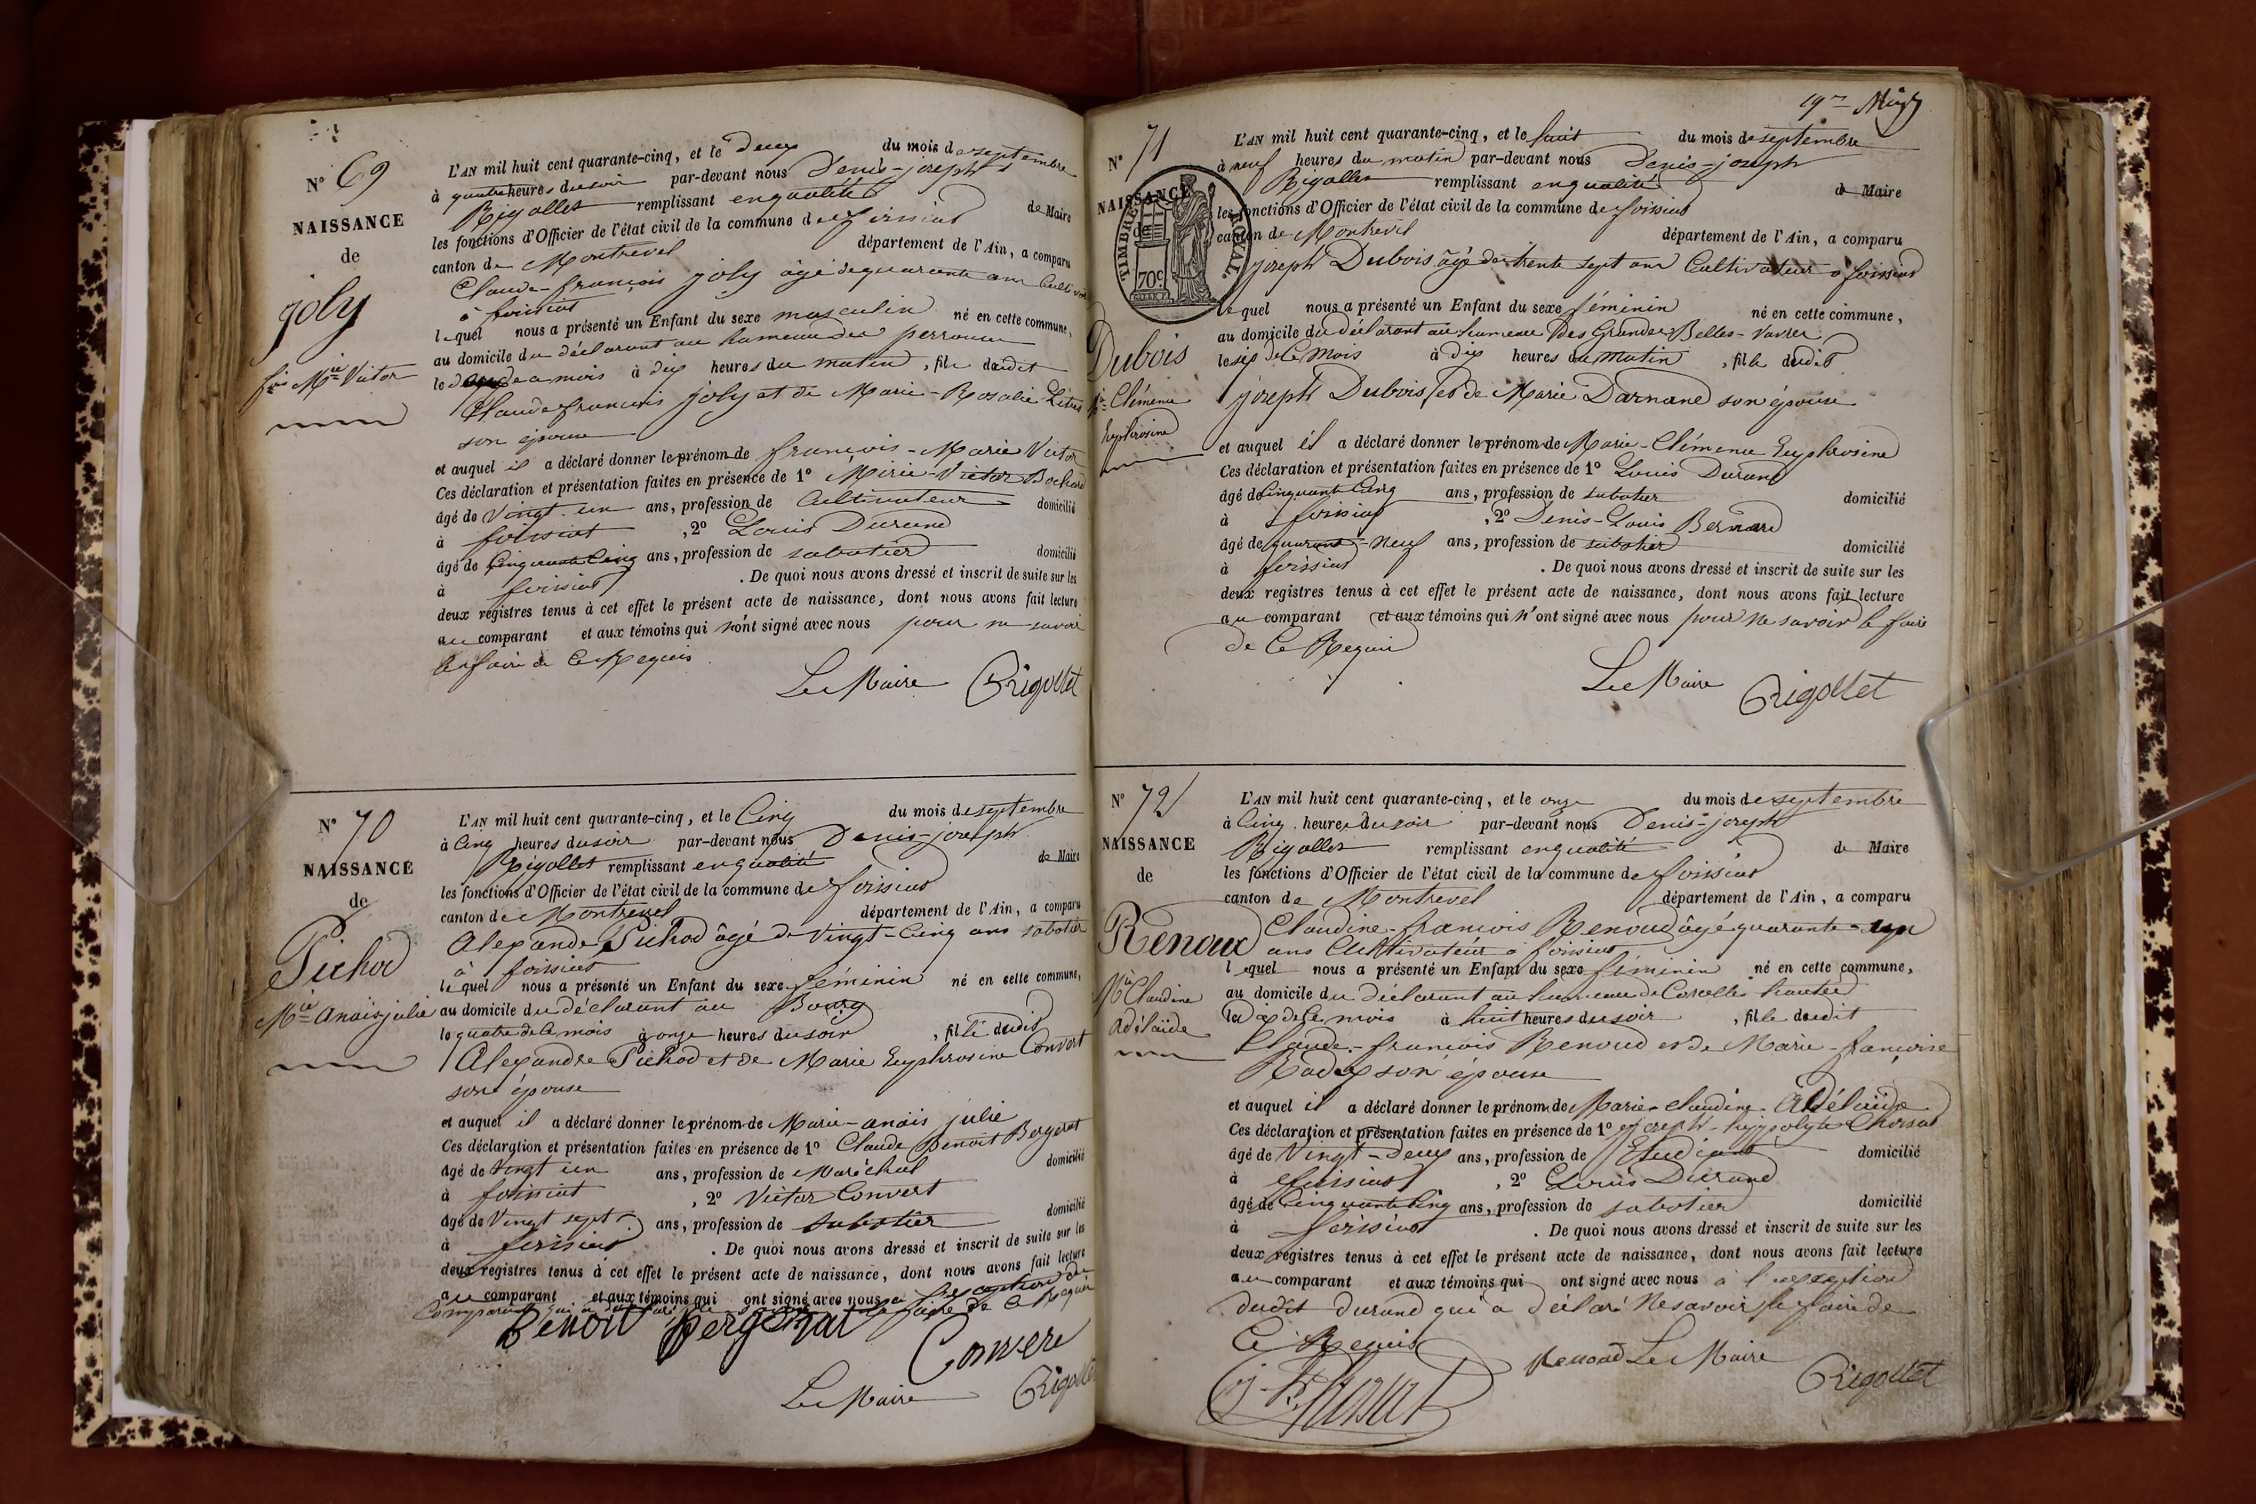 Nº 69
NAISSANCE
de
joly
fois Mie Victor
L'AN mil huit cent quarante-cinq, et le deux du mois de septembre
à quatre heures du soir par-devant nous Denis-joseph
Rigollet remplissant en qualité de Maire
les fonctions d'Officier de l'état civil de la commune de foissiat
canton de Montrevel département de l'Ain, a comparu
Claude-françois joly âgé de quarante ans Cultivateur
à foissiat
lequel nous a présenté un Enfant du sexe masculin né en cette commune,
au domicile du déclarant au hameau du perroux
le deux de ce mois à dix heures du matin, fils dudit
Claude françois joly et de Marie-Rosalie
son épouse
et auquel il a déclaré donner le prénom de françois-Marie Victor
Ces déclaration et présentation faites en présence de 1º Marie-Victor Bochard
âgé de Vingt-un ans, profession de Cultivateur domicilié
à foissiat, 2º Louis Durand
âgé de Cinquante Cinq ans, profession de sabotier domicilié
à foissiat. De quoi nous avons dressé et inscrit de suite sur les
deux registres tenus à cet effet le présent acte de naissance, dont nous avons fait lecture
au comparant et aux témoins qui n'ont signé avec nous pour ne savoir
le faire de Ce Requis
Le Maire Rigollet
Nº 70
NAISSANCE
de
Pichod
Mie anaïs julie
L'AN mil huit cent quarante-cinq, et le Cinq du mois de septembre
à Cinq heures du soir par-devant nous Denis-joseph
Rigollet remplissant en qualité de Maire
les fonctions d'Officier de l'état civil de la commune de foissiat
canton de Montrevel département de l'Ain, a comparu
Alexandre Pichod âgé de Vingt-Cinq ans sabotier
à foissiat
lequel nous a présenté un Enfant du sexe féminin né en cette commune,
au domicile du déclarant au Bourg
le quatre de ce mois à onze heures du soir, fille dudit
Alexandre Pichod et de Marie Euphrosine Convert
son épouse
et auquel il a déclaré donner le prénom de Marie-anaïs julie
Ces déclaration et présentation faites en présence de 1º Claude Benoit Bergerat
âgé de Vingt un ans, profession de Maréchal domicilié
à foissiat, 2º Victor Convert
âgé de Vingt sept ans, profession de sabotier domicilié
à foissiat. De quoi nous avons dressé et inscrit de suite sur les
deux registres tenus à cet effet le présent acte de naissance, dont nous avons fait lecture
au comparant et aux témoins qui ont signé avec nous a l'exception du
Comparant qui a déclaré ne savoir le faire de Ce Requis
Benoit Bergerat Convert
Le Maire Rigollet
19me
Nº 71
NAISSANCE
de
TIMBRE ROYAL.
70c.
Dubois
Mie Clémence
Euphrosine
L'AN mil huit cent quarante-cinq, et le huit du mois de septembre
à neuf heures du matin par-devant nous Denis-joseph
Rigollet remplissant en qualité de Maire
les fonctions d'Officier de l'état civil de la commune de foissiat
canton de Montrevel département de l'Ain, a comparu
joseph Dubois âgé de trente sept ans Cultivateur a foissiat
lequel nous a présenté un Enfant du sexe féminin né en cette commune,
au domicile du déclarant au hameau Des Grandes Belles-Vavres
le six de Ce Mois à dix heures du matin, fille dudit
joseph Dubois et de Marie Darnand son épouse
et auquel il a déclaré donner le prénom de Marie-Clémence Euphrosine
Ces déclaration et présentation faites en présence de 1º Louis Durand
âgé de Cinquante Cinq ans, profession de sabotier domicilié
à foissiat, 2º Denis-Louis Bernard
âgé de quarante-neuf ans, profession de sabotier domicilié
à foissiat. De quoi nous avons dressé et inscrit de suite sur les
deux registres tenus à cet effet le présent acte de naissance, dont nous avons fait lecture
au comparant et aux témoins qui n'ont signé avec nous pour ne savoir le faire
de Ce Requis
Le Maire Rigollet
Nº 72
NAISSANCE
de
Renoud
Mie Claudine
adélaïde
L'AN mil huit cent quarante-cinq, et le onze du mois de septembre
à Cinq heures du soir par-devant nous Denis-joseph
Rigollet remplissant en qualité de Maire
les fonctions d'Officier de l'état civil de la commune de foissiat
canton de Montrevel département de l'Ain, a comparu
Claudine-françois Renoud âgé quarante-un
ans Cultivateur a foissiat
lequel nous a présenté un Enfant du sexe féminin né en cette commune,
au domicile du déclarant au hameau de Corcelles
le dix de ce mois à huit heures du soir, fille dudit
Claude-françois Renoud et de Marie-françoise
Rodet son épouse
et auquel il a déclaré donner le prénom de Marie-claudine-Adélaïde
Ces déclaration et présentation faites en présence de 1º joseph-hyppolyte Choisat
âgé de Vingt-Deux ans, profession de Etudiant domicilié
à foissiat, 2º Louis Durand
âgé de Cinquante Cinq ans, profession de sabotier domicilié
à foissiat. De quoi nous avons dressé et inscrit de suite sur les
deux registres tenus à cet effet le présent acte de naissance, dont nous avons fait lecture
au comparant et aux témoins qui ont signé avec nous à l'exception
dudit durand qui a déclaré Ne savoir le faire de
Ce Requis
Renoud Le Maire Rigollet